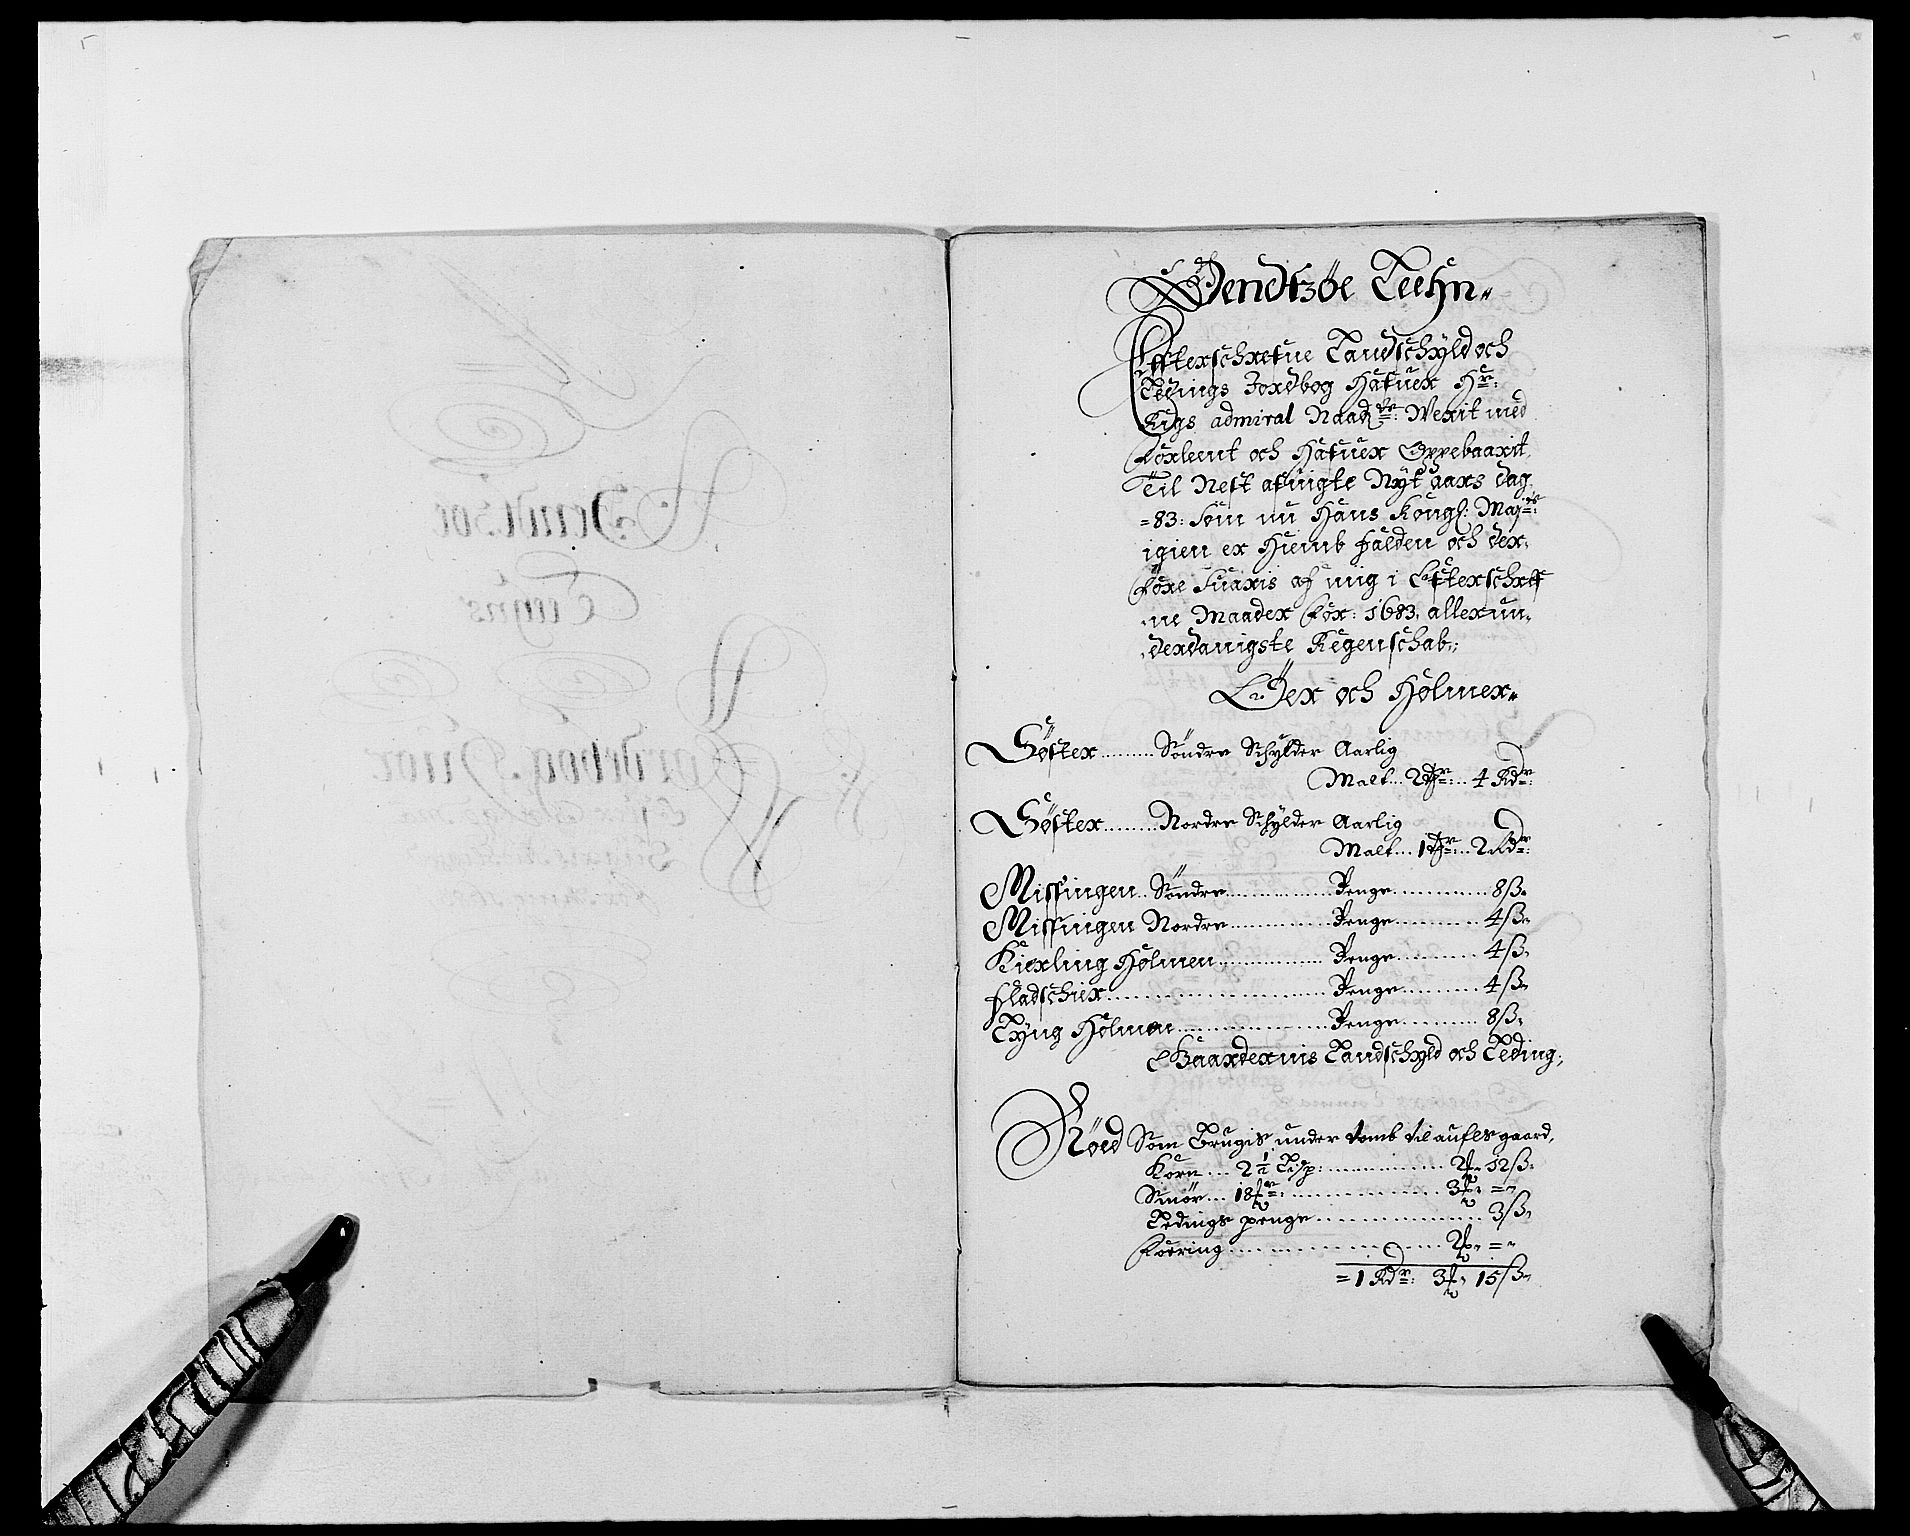 Jendtzøe Leehn
Effterschrefne Landschyld och
Ledings Jordbog hafuer Hr:
Rigs admiral Naadr: Werit med
Forleent och hafuer Oppebaarit,
Til Nest afuigte Nyt aars dag
=83: Som nu Hans Kongl: Mayts:
igien er Hiemb falden och der,
Fore Suaris af mig i Effterschreff
ne Maader For: 1683, allerun,
derdanigste Regenschab,;
Öer och Holmer
Søster ......... Søndre Schylder Aarlig
Malt... 2 Tr:... 4 Rdr:
Søster ......... Nordre Schylder Aarlig
Malt... 1 Tr:... 2 Rdr:
Missingen.. Søndre ............ Penge ............ 8 ß
Missingen Nordre ............ Penge ............ 4 ß
Kierling Holmen ............ Penge ............ 4 ß
Fladschier ........................ Penge ............ 4 ß
Lyng Holmen ............ Penge ............ 8 ß
Gaardernis Landschyld och Leding;
Røed Som Brugis under tomb til aufls gaard,
Korn... 2 1/2 Lisp: ............ 2 12 ß
Smør... 18 ............ 3 = =
Ledings penge ............ 3 ß
Foering ............ 2 = =
= 1 Rdr: 3 15 ß